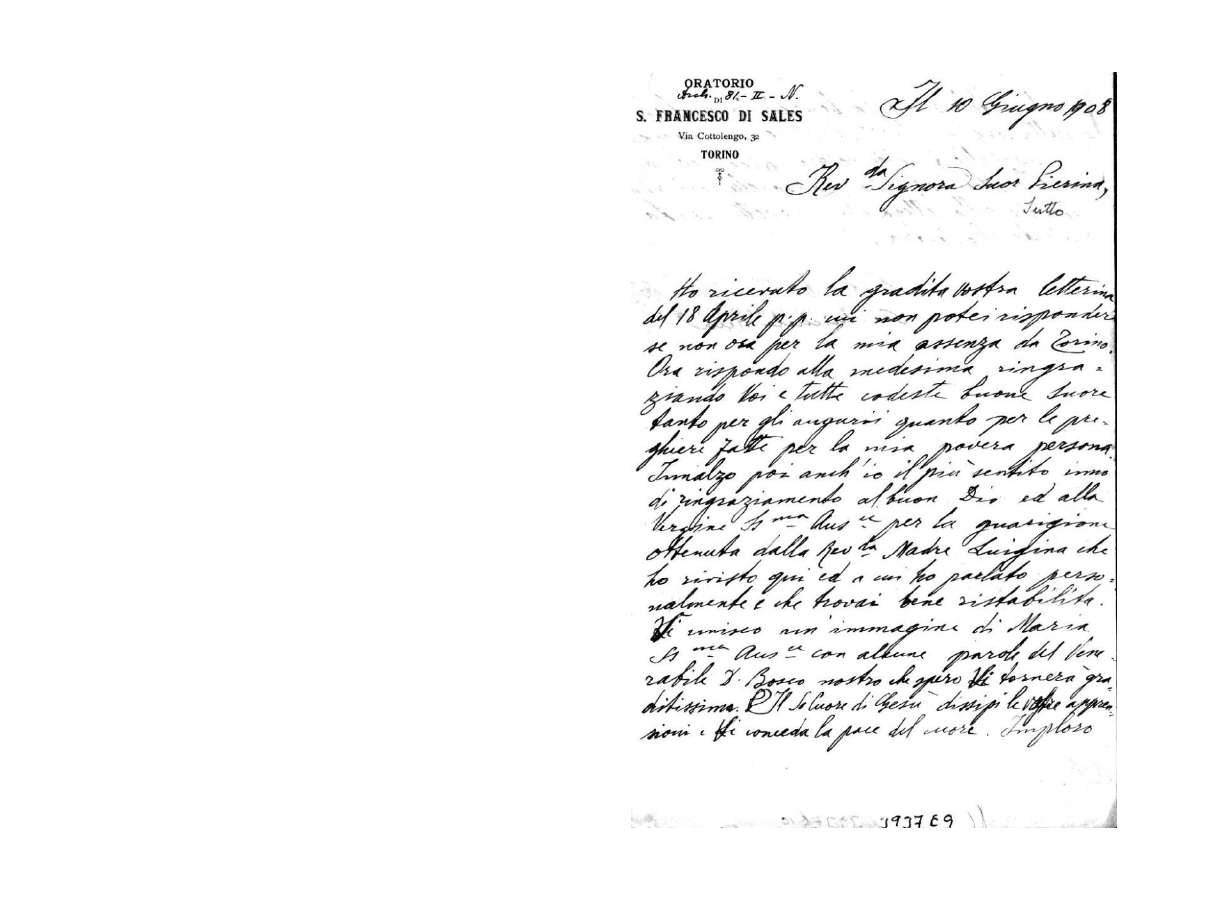 ORATORIO
Arch. DI 81.- II - N.
S. FRANCESCO DI SALES
Via Cottolengo, 32
TORINO
Il 10 Giugno 1908
Rev da Signora Suor Pierina,
Ho ricevuto la gradita vostra letterina
del 18 Aprile p.p. cui non potei risponder
se non ora per la mia assenza da Torino.
Ora rispondo alla medesima ringra=
ziando Voi e tutte codeste buone Suore
tanto per gli augurii quanto per le pre-
ghiere fatte per la mia povera persona.
Innalzo poi anch'io il più sentito inno
di ringraziamento al buon Dio ed alla
Vergine SS ma Aus ce per la guarigione
ottenuta dalla Rev da Madre Luigina che
ho rivisto qui ed a cui ho parlato perso=
nalmente e che trovai bene ristabilita.
Vi unisco un'immagine di Maria
SS ma Aus ce con alcune parole del Vene-
rabile D. Bosco nostro che spero Vi tornerà gra
ditissima. Il S. Cuore di Gesù dissipi le vostre appren=
sioni e Vi conceda la pace del cuore. Imploro
3937 E 9